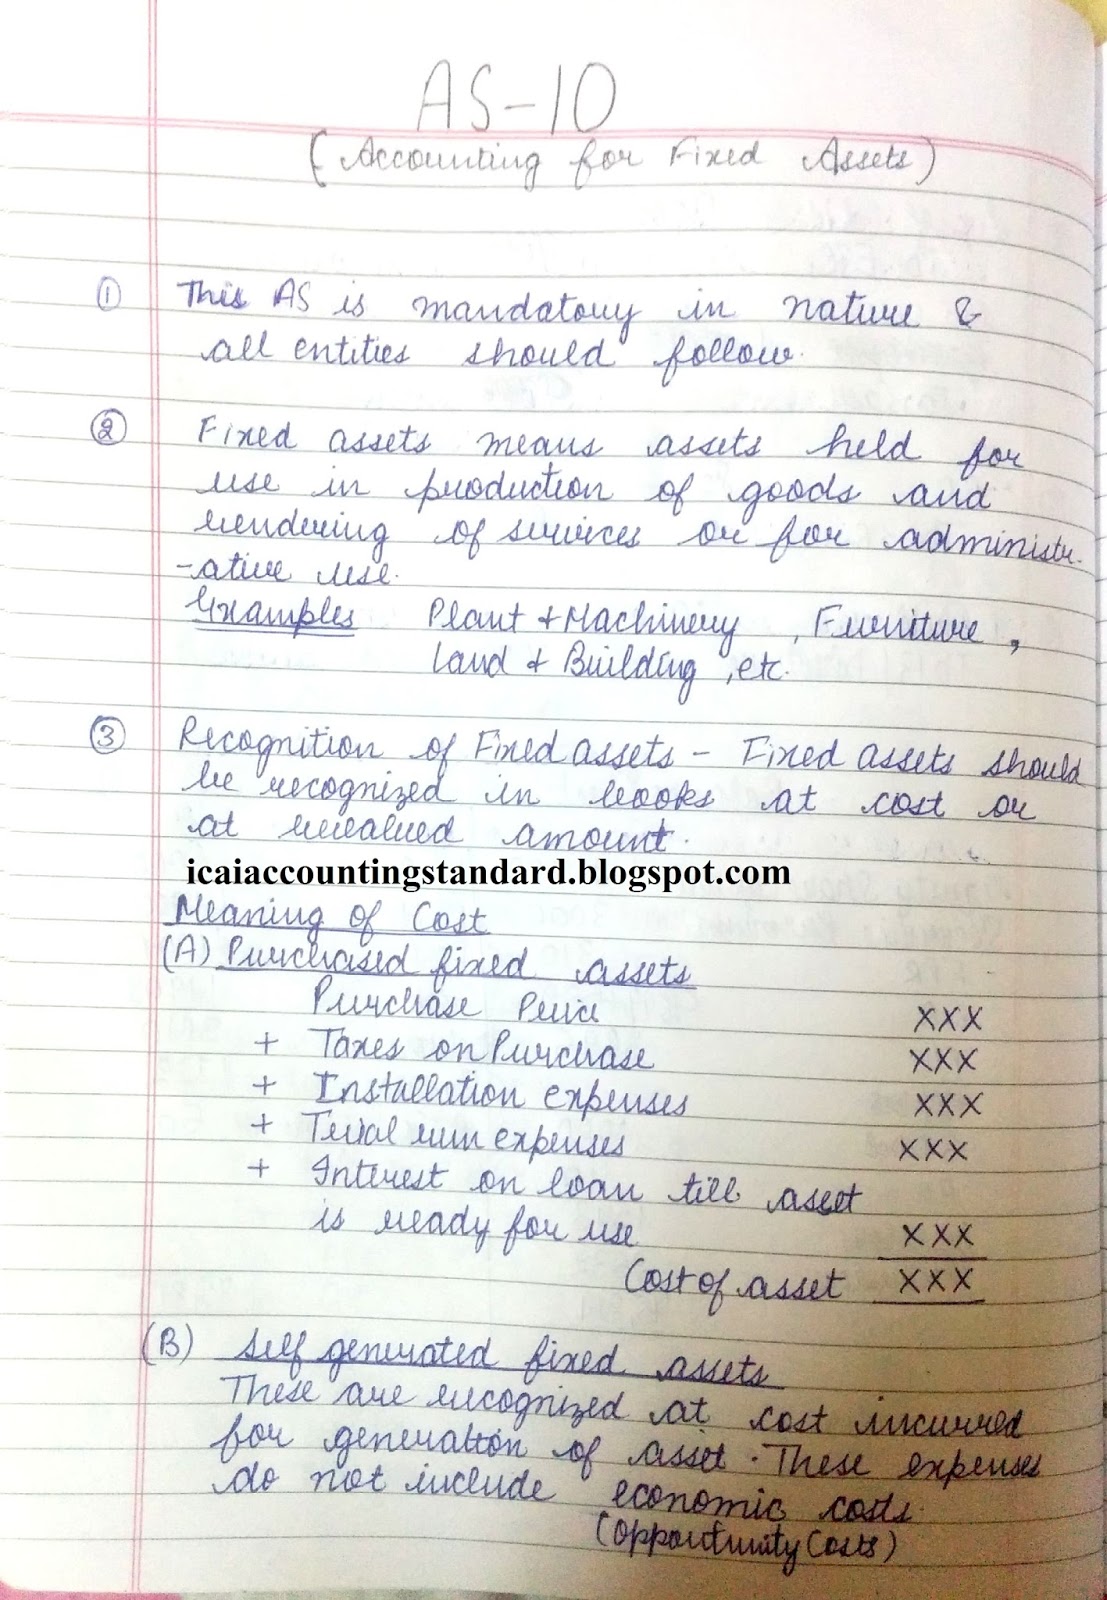 AS-10
(Accounting for Fixed Assets)
① This AS is mandatory in nature &
all entities should follow.
② Fixed assets means assets held for
use in production of goods and
rendering of services or for administr.
-ative use.
Examples Plant & Machinery , Furniture ,
Land & Building , etc.
③ Recognition of Fixed assets - Fixed assets should
be recognized in books at cost or
at revalued amount.
icaiaccountingstandard.blogspot.com
Meaning of Cost
(A) Purchased fixed assets
Purchase Price XXX
+ Taxes on Purchase XXX
+ Installation expenses XXX
+ Trial run expenses XXX
+ Interest on loan till asset
is ready for use XXX
Cost of asset XXX
(B) Self generated fixed assets
These are recognized at cost incurred
for generation of asset. These expenses
do not include economic costs.
(opportunity costs)